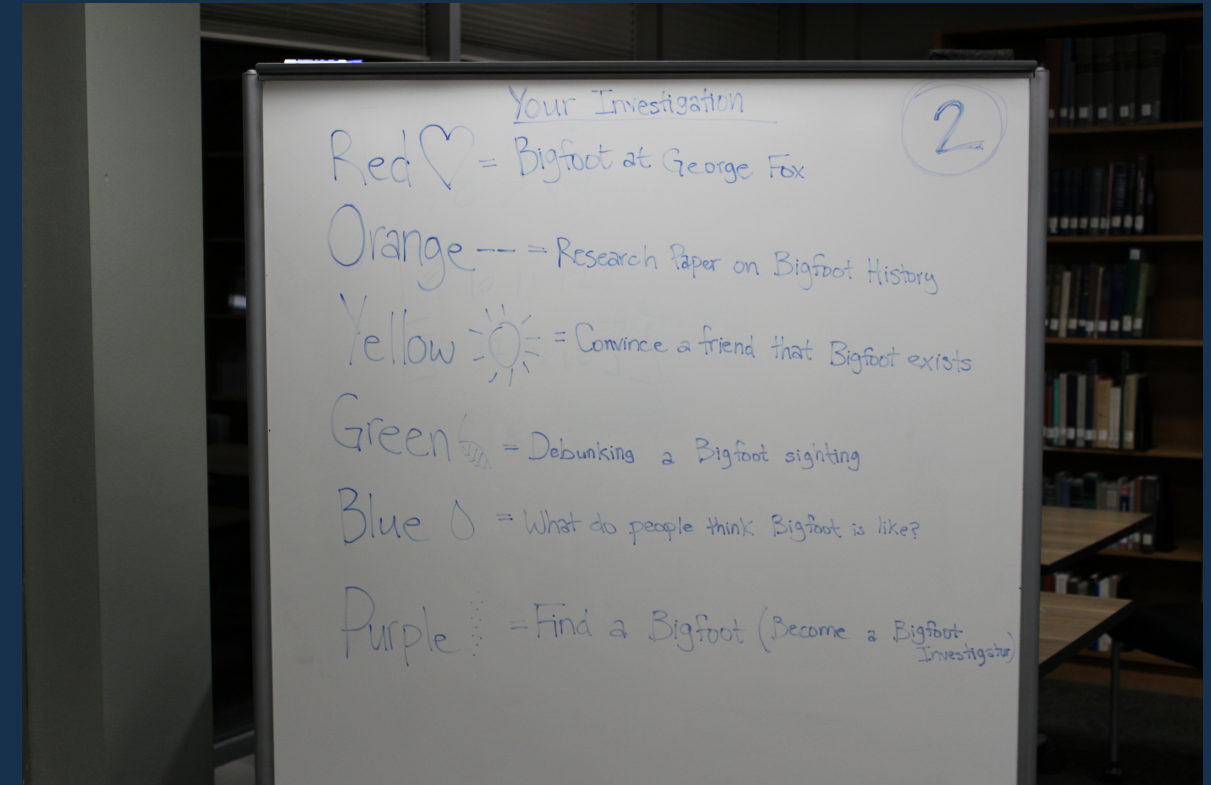 Your Investigation
2
Red = Bigfoot at George Fox
Orange -- = Research Paper on Bigfoot History
Yellow = Convince a friend that Bigfoot exists
Green = Debunking a Bigfoot sighting
Blue = What do people think Bigfoot is like?
Purple = Find a Bigfoot (Become a Bigfoot
Investigator)